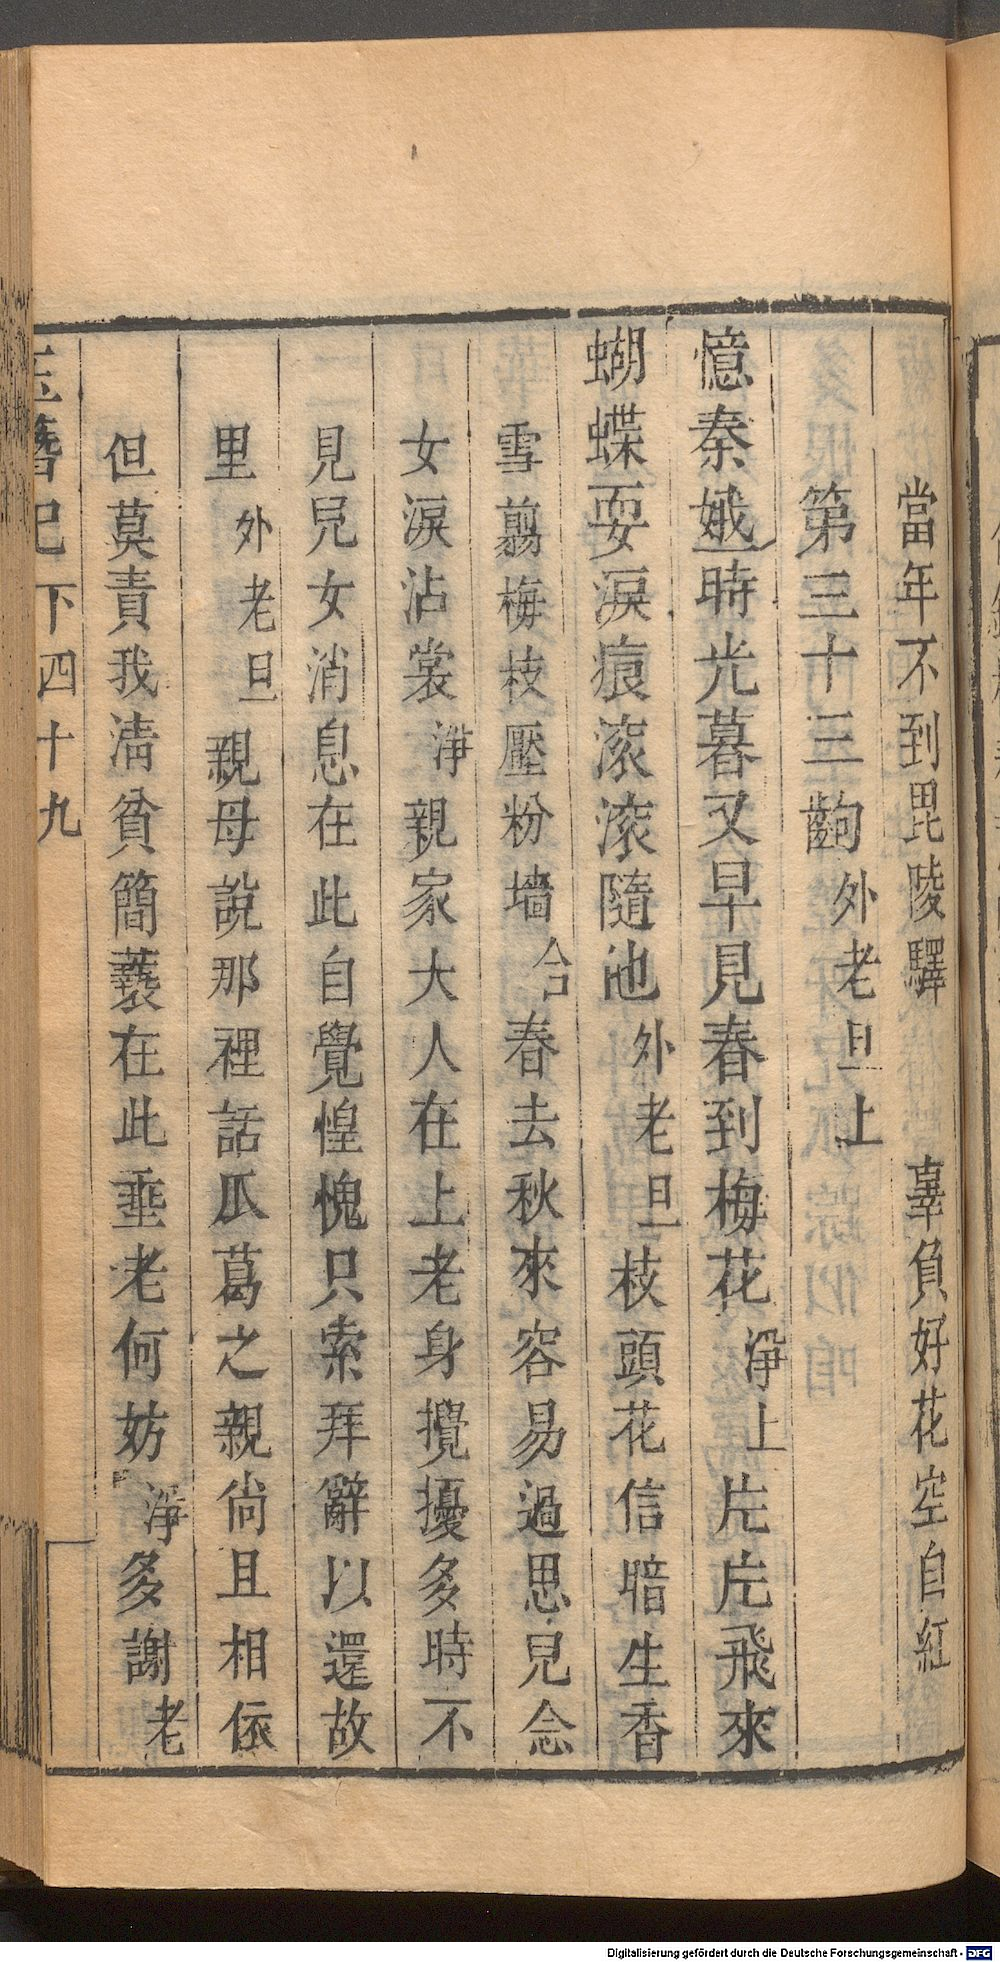 當年不到毘陵驛　辜負好花空自紅
第三十三齣　外老旦上
憶秦娥時光暮又早見春到梅花淨上片片飛來
蝴蝶耍淚痕滚滚隨池外老旦枝頭花信暗生香
雪剪梅枝壓粉墻合春去秋來容易過思兒念
女淚沾裳淨親家大人在上老身攪擾多時不
見兒女消息在此自覺惶愧只索拜辭以還故
里外老旦親母說那裡話瓜葛之親尚且相依
但莫責我淸貧簡䙝在此垂老何妨淨多謝老
玉簪記下四十九
Digitalisierung gefördert durch die Deutsche Forschungsgemeinschaft - DFG